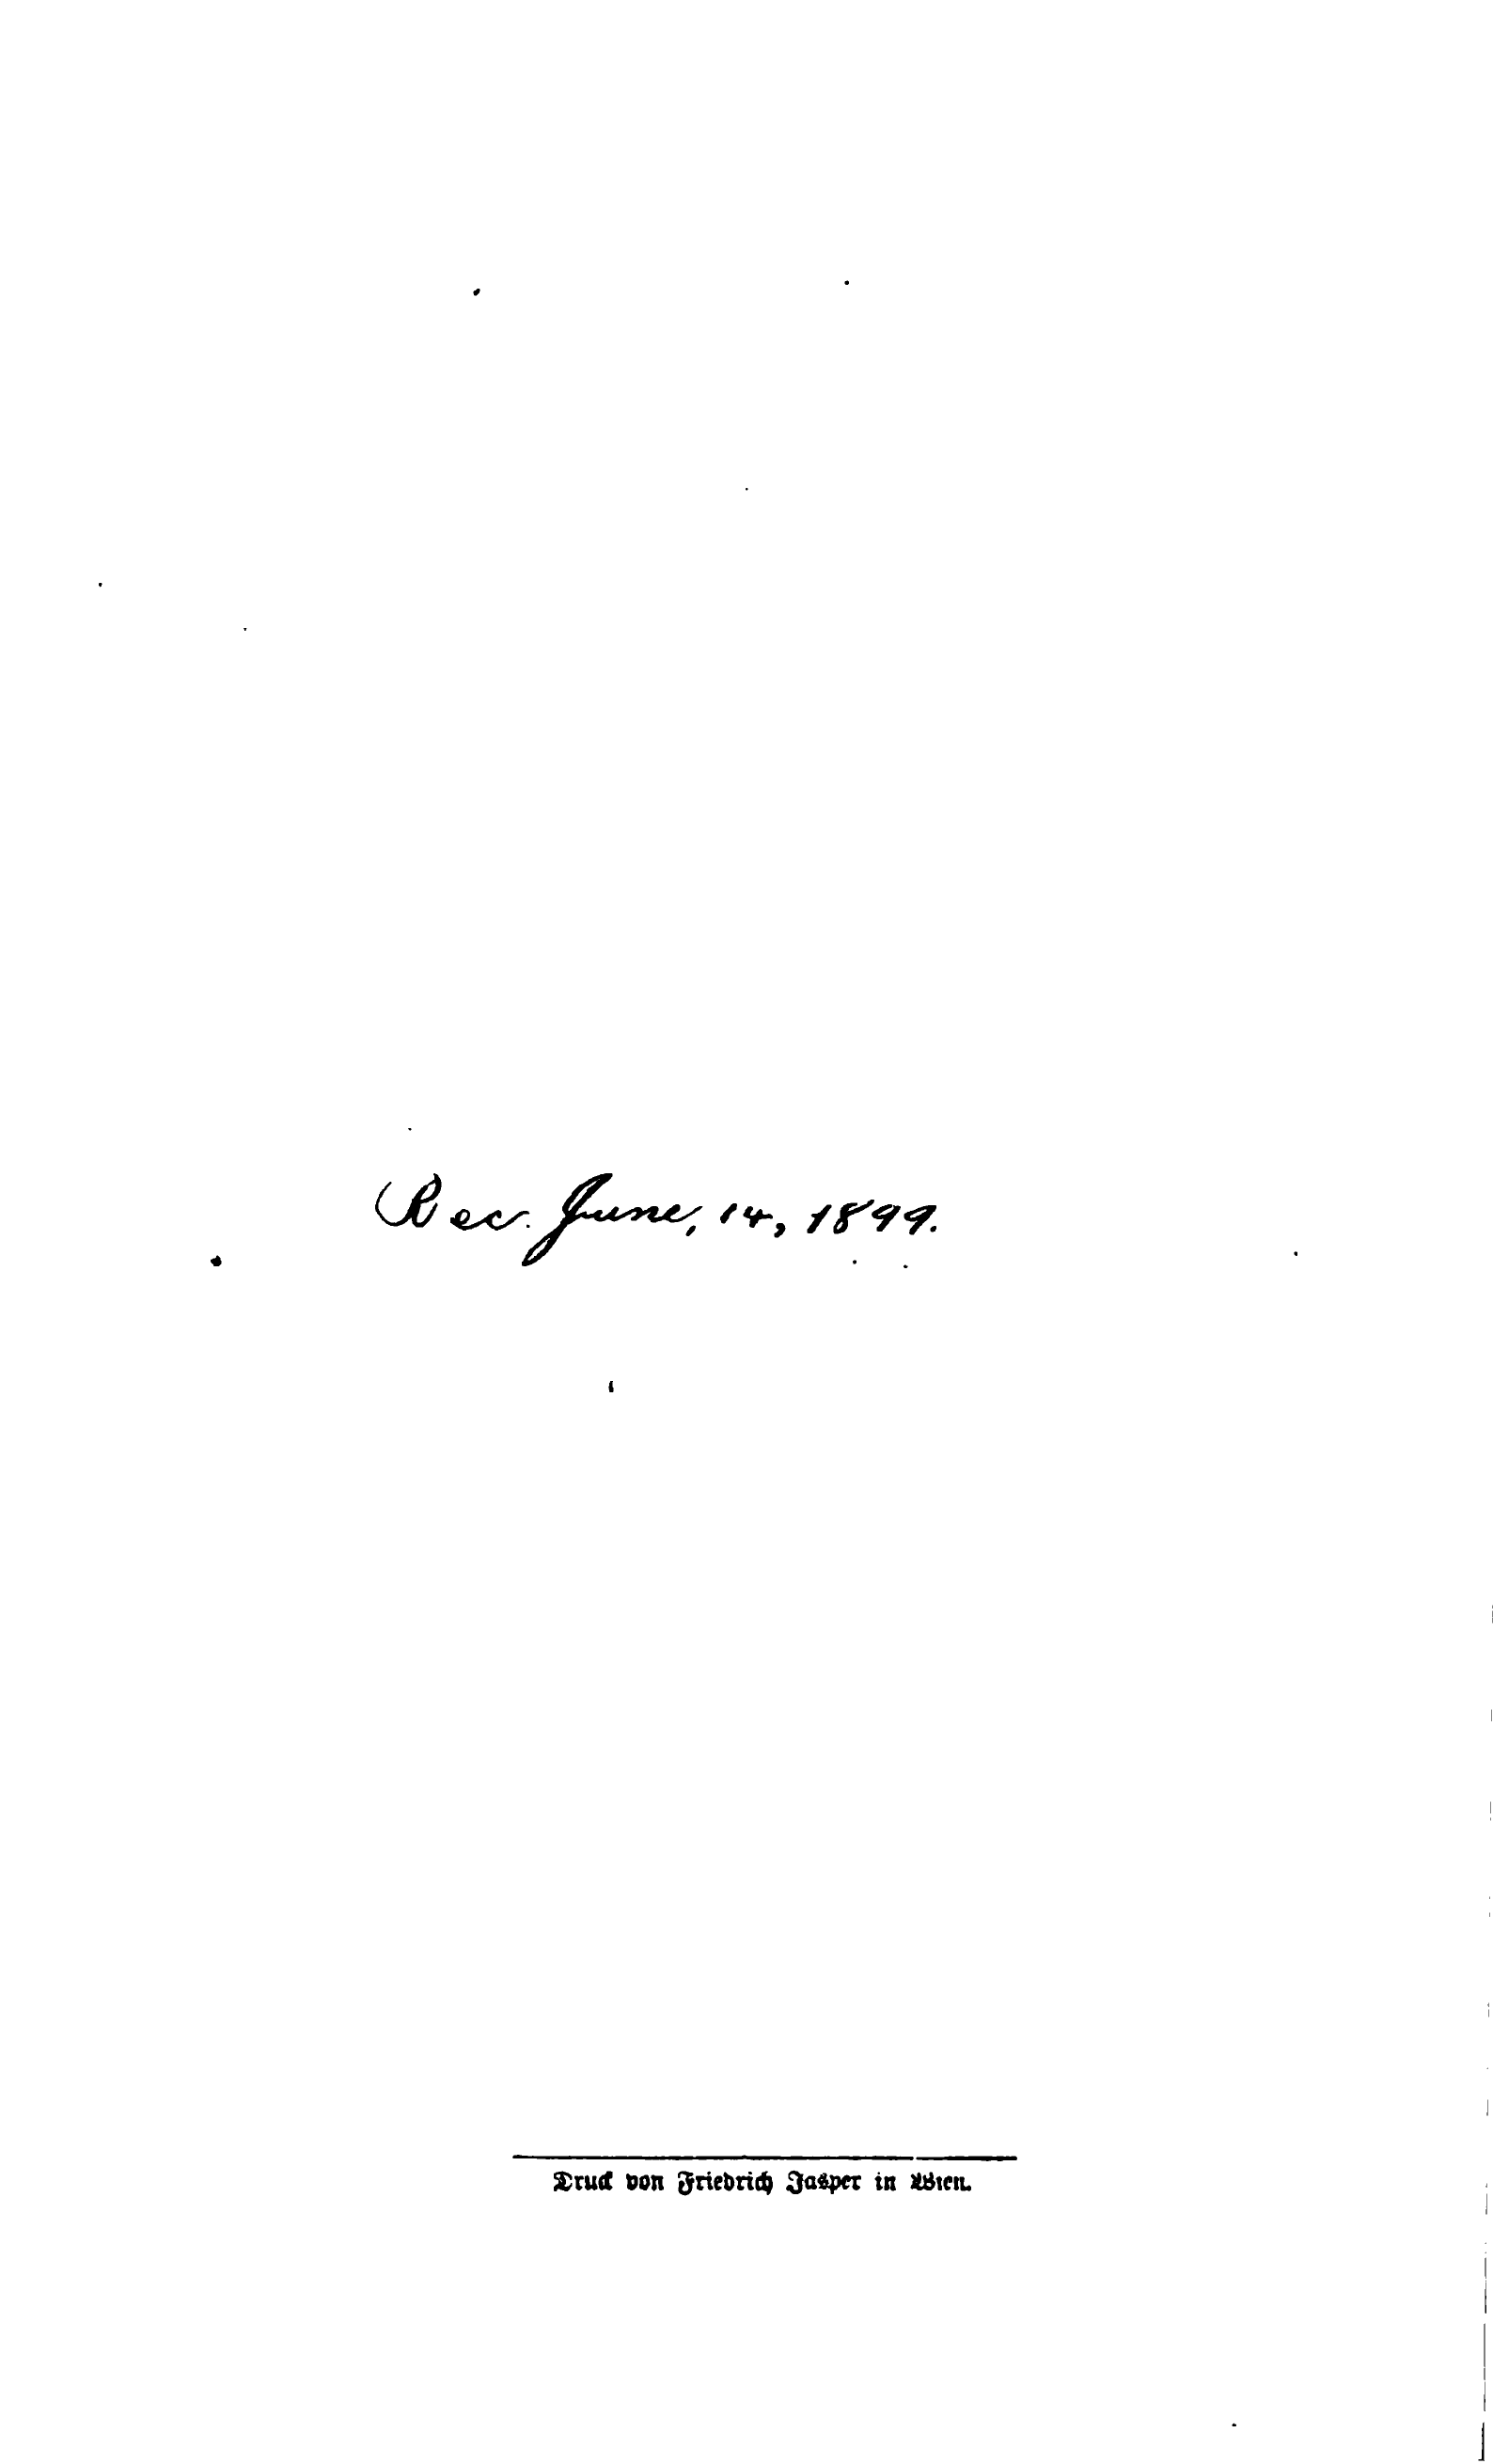 Rec. June, 14, 1899.
Druck von Friedrich Jasper in Wien.